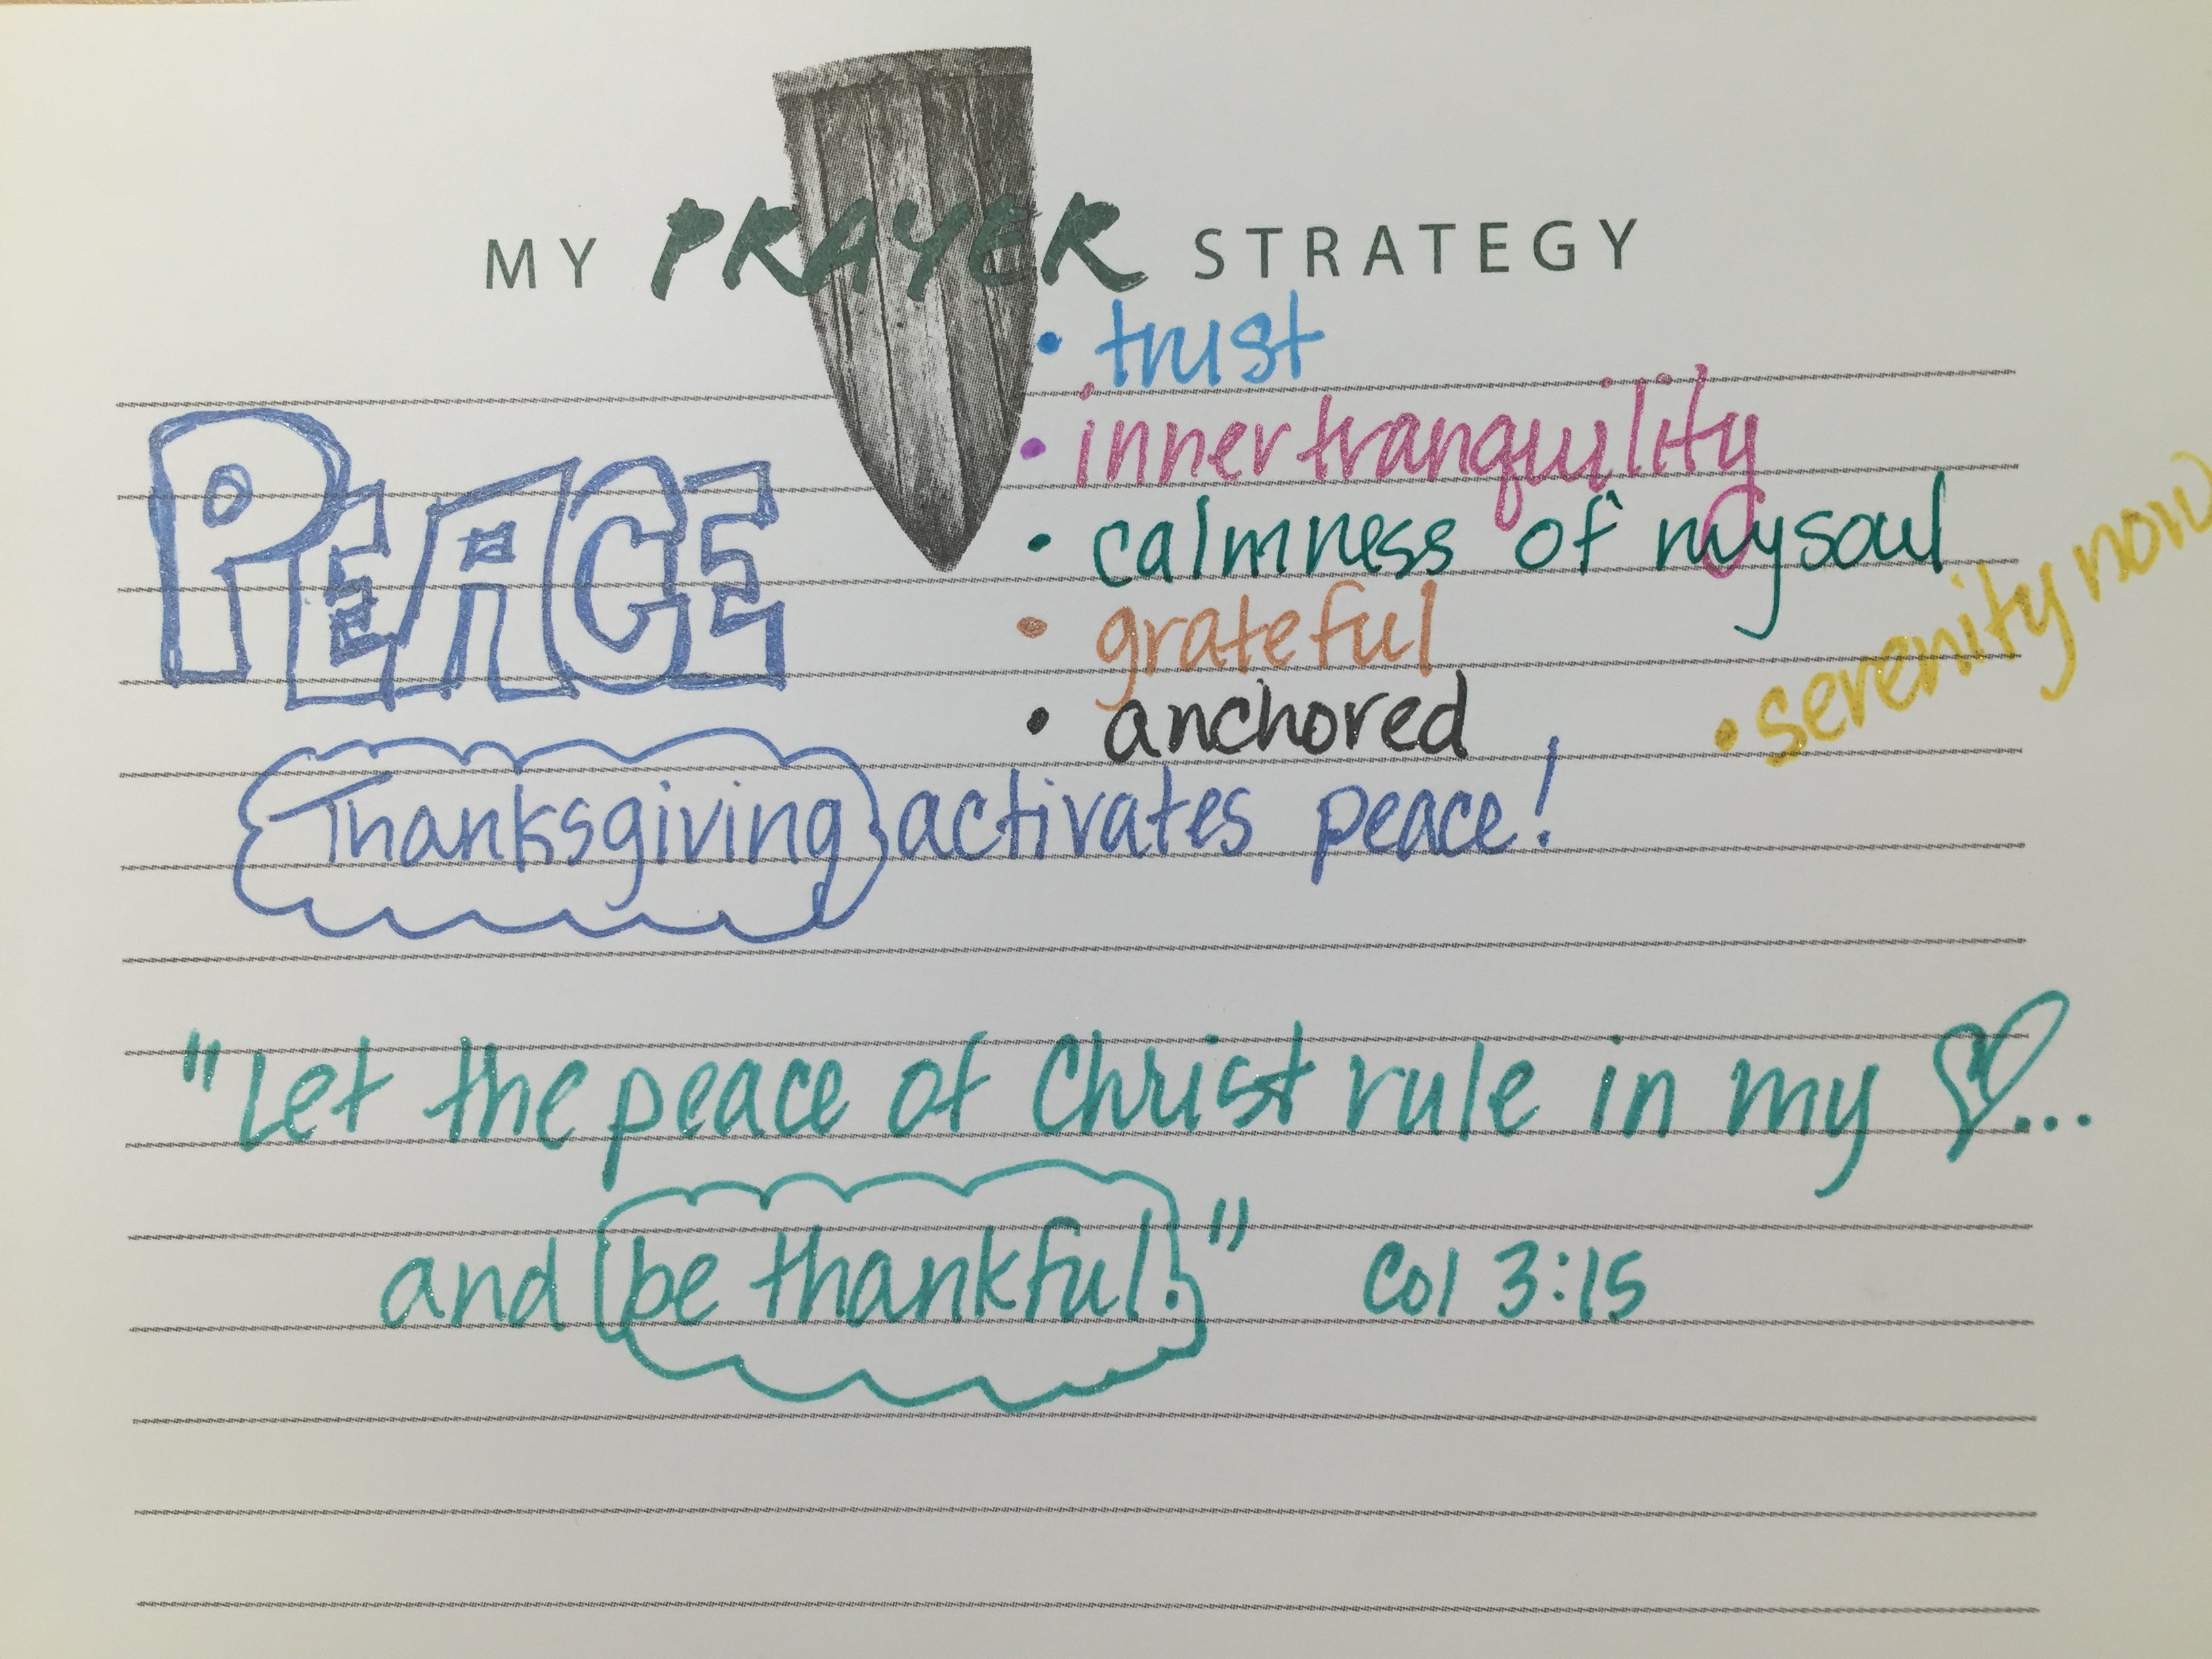 MY PRAYER STRATEGY
• trust
• inner tranquility
• calmness of my soul
• grateful
• anchored
• serenity now
PEACE
Thanksgiving activates peace!
"Let the peace of Christ rule in my ♡...
and be thankful." Col 3:15